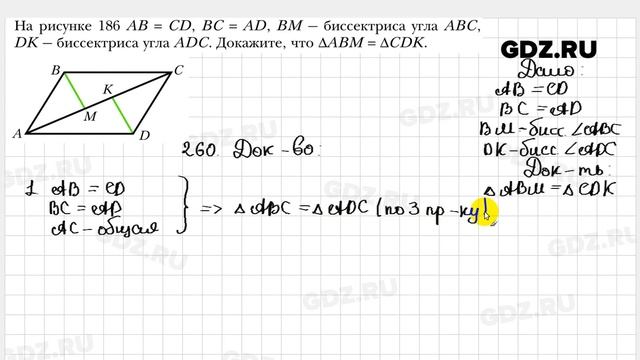 На рисунке 186 AB = CD, BC = AD, BM – биссектриса угла ABC,
DK – биссектриса угла ADC. Докажите, что ΔABM = ΔCDK.
GDZ.RU
B
C
K
M
A
D
Дано:
AB = CD
BC = AD
BM – бисс. ∠ABC
DK – бисс ∠ADC
Док – ть:
Δ ABM = Δ CDK
260. Док – во:
1 AB = CD
BC = AD
AC – общая
=> Δ ABC = Δ ADC (по 3 пр – ку)
GDZ.RU
GDZ.RU
GDZ.RU
GDZ.RU
GDZ.RU
GDZ.RU